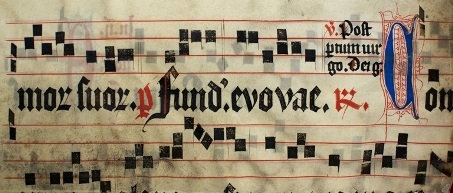 ℣. Post
ptum uir
go. Dei g̃.
mor suor. p̲ fund'. evovae. ℟. Con